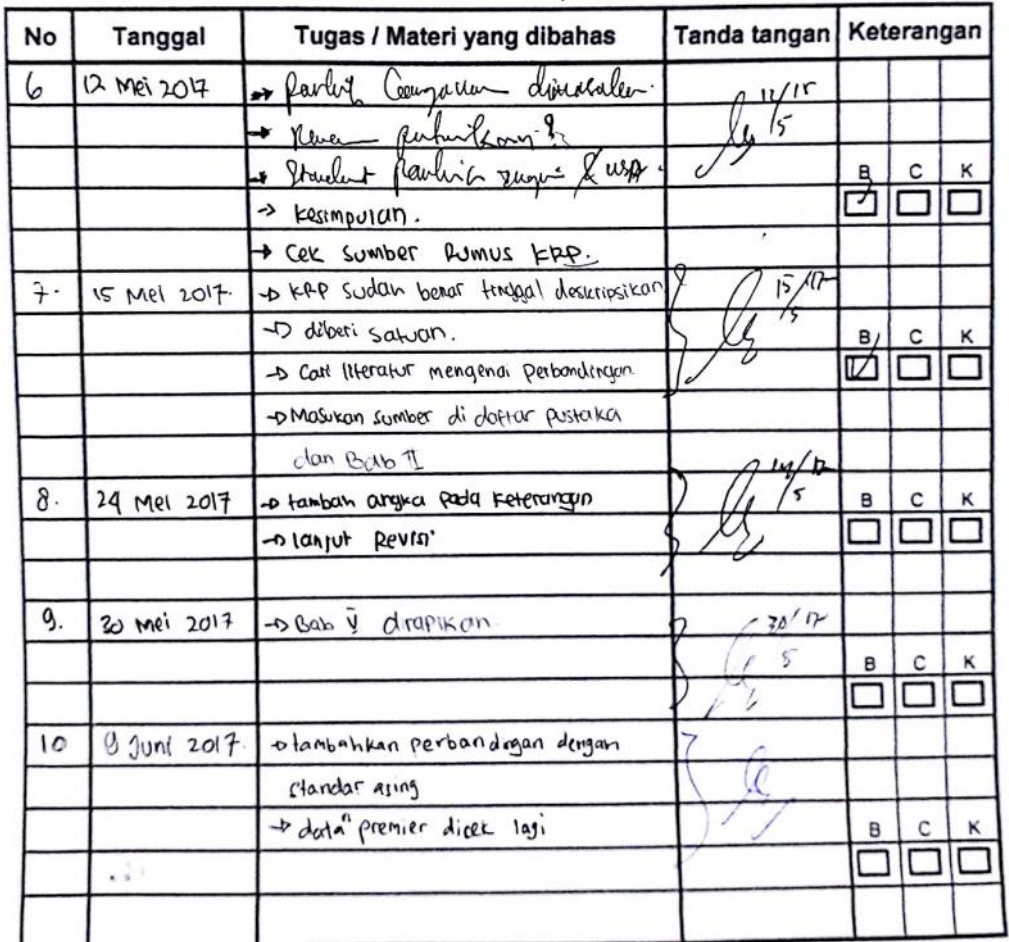 No Tanggal Tugas / Materi yang dibahas Tanda tangan Keterangan
6 12 Mei 2017 → 12/17
→ 5
→ Standart & USA. B C K
→ kesimpulan.
→ Cek Sumber Rumus KRP.
7. 15 Mei 2017. → KRP Sudah benar tinggal deskripsikan 15/17
→ diberi satuan. 5 B C K
→ Cari literatur mengenai Perbandingan
→ Masukan sumber di daftar pustaka
dan Bab II
8. 24 Mei 2017 → tambah angka Pada Keterangan 5 B C K
→ lanjut Revisi
9. 30 Mei 2017 → Bab V dirapikan 30/17
5 B C K
10 9 Juni 2017. → tambahkan perbandigan dengan
standar asing
→ data" premier dicek lagi B C K